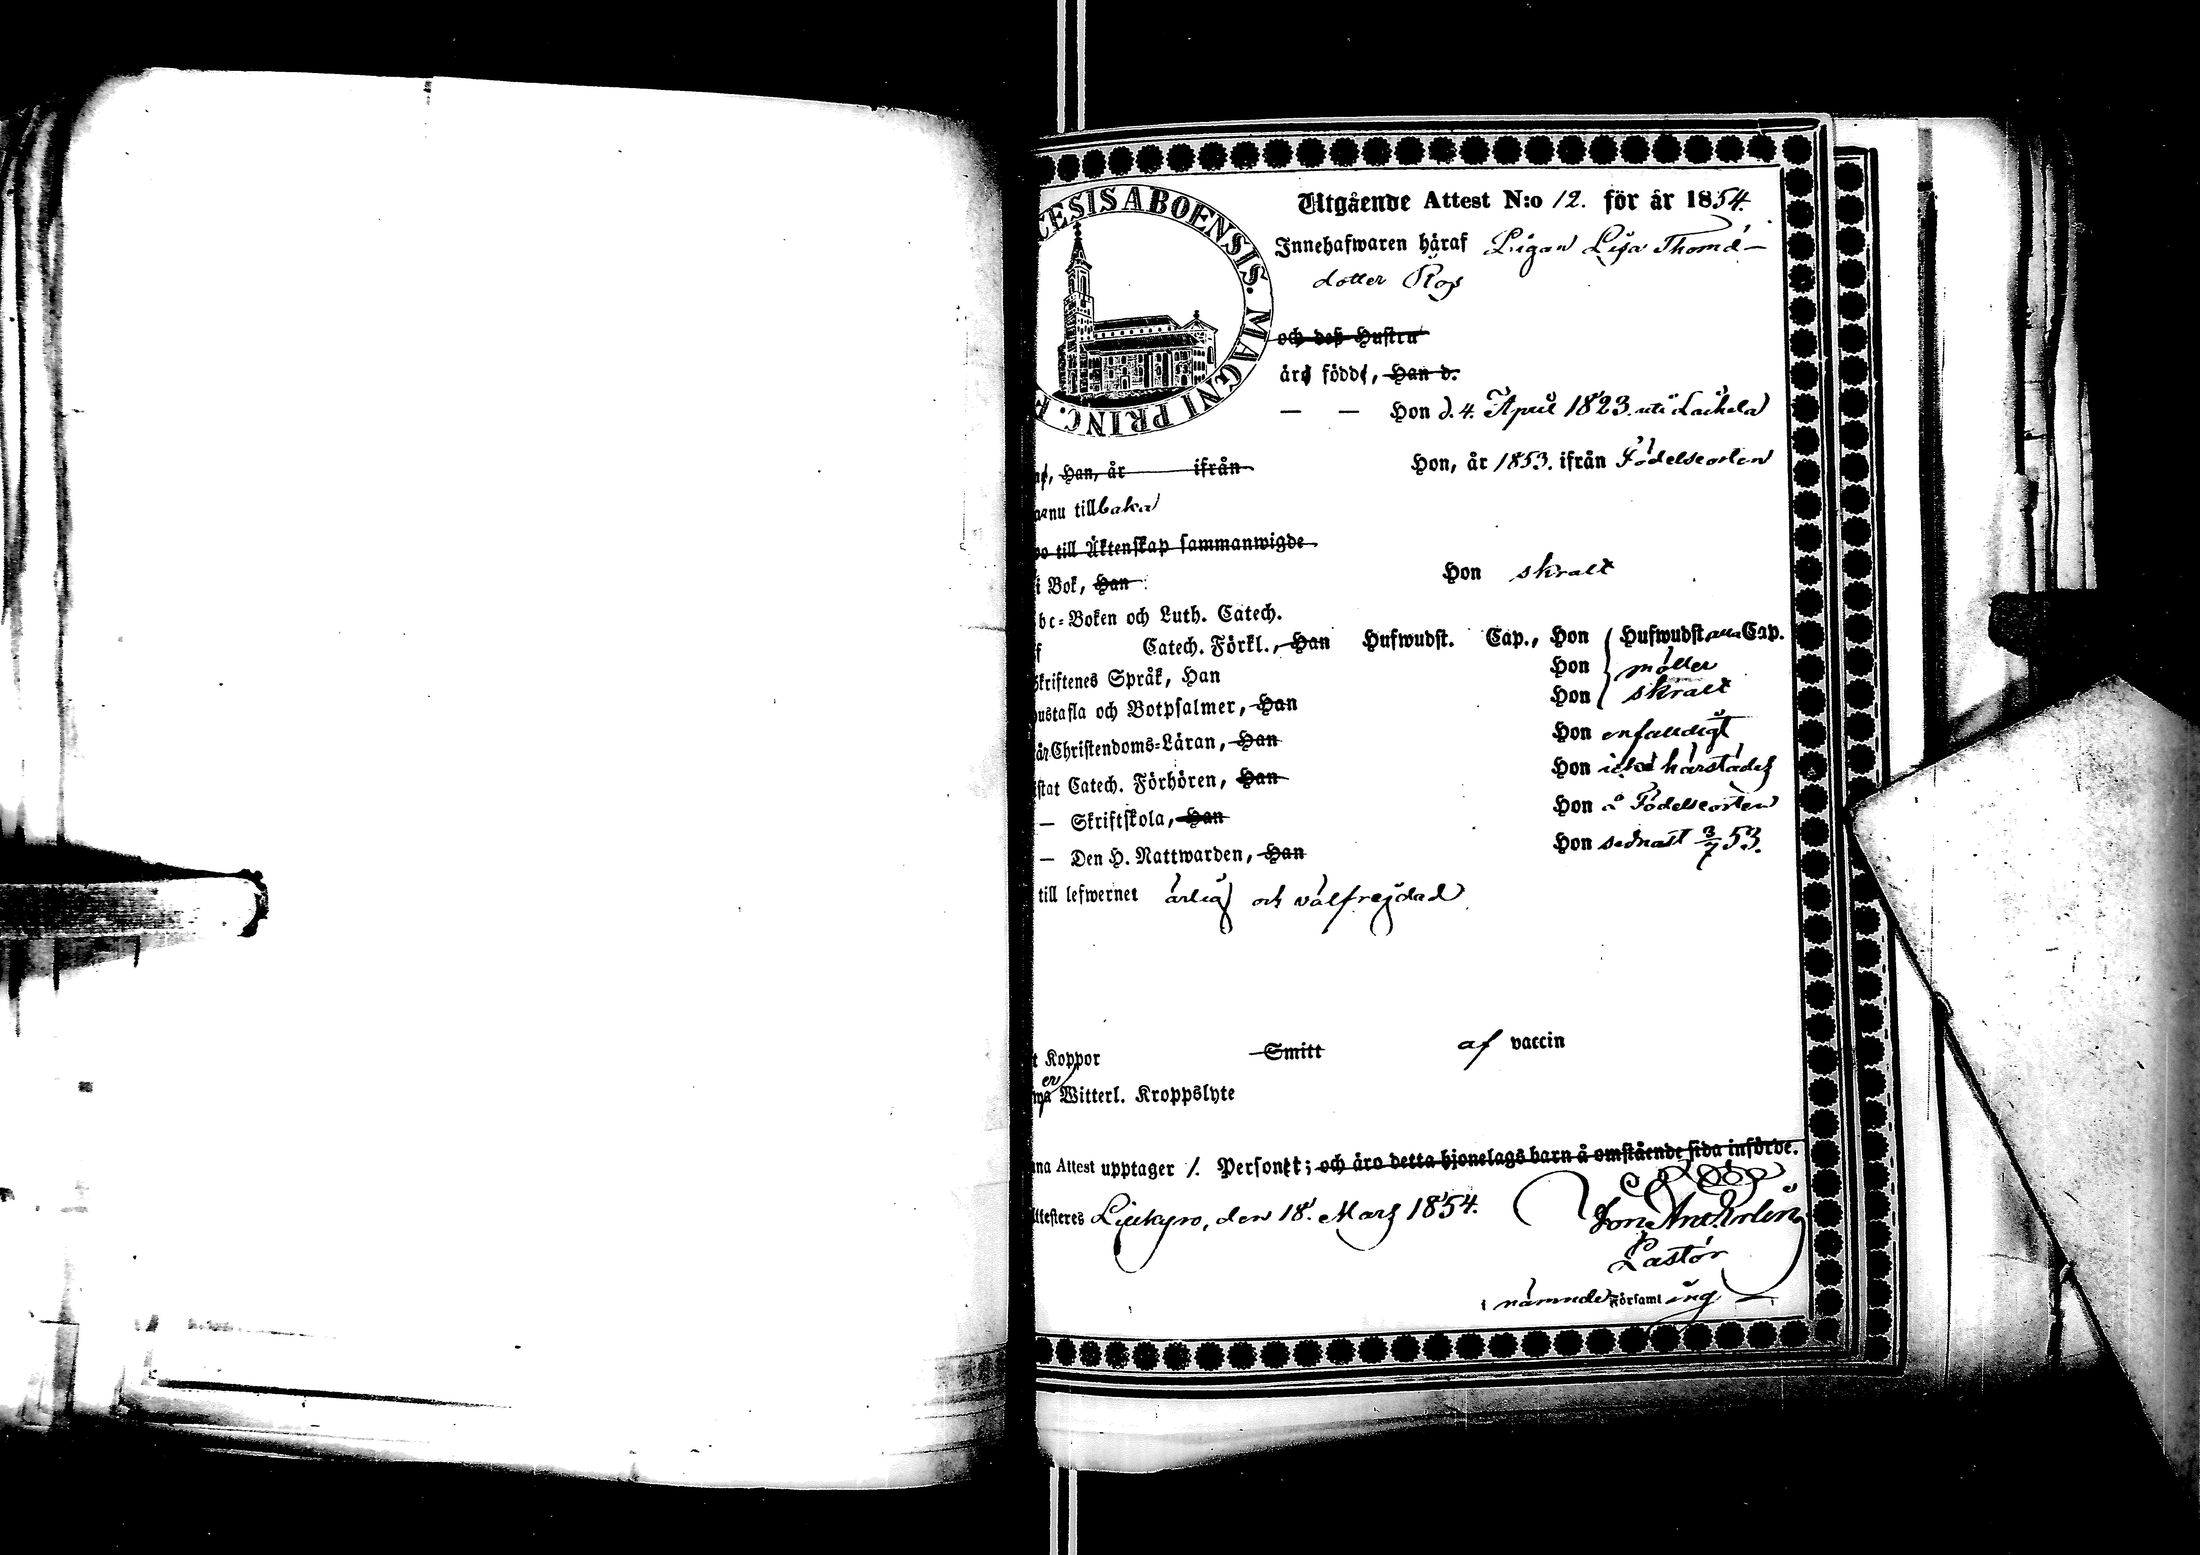 CESIS ABOENSIS. MAGNI PRINC. F
Utgående Attest N:o 12. för år 1854.
Innehafwaren häraf Pigan Lisa Thomæ-
dotter Ros
och deß Hustru
äro född, Han d.
— — Hon d. 4. April 1823. uti Laihela
Han, år ifrån Hon, år 1853. ifrån Födelseorten
nu tillbaka
till Äktenskap sammanwigde
i Bok, Han Hon skralt
bc-Boken och Luth. Catech.
f Catech. Förkl., Han Hufwudst. Cap., Hon Hufwudst. alla Cap.
Skriftenes Språk, Han Hon måller
hustafla och Botpsalmer, Han Hon skralt
Christendoms-Läran, Han Hon enfaldigt
istat Catech. Förhören, Han Hon icke härstädes
— Skriftskola, Han Hon å Födelseorten
— Den H. Nattwarden, Han Hon sednast 3/7 53.
till lefwernet ärlig och välfrejdad
t Koppor Smitt af vaccin
er
Witterl. Kroppslyte
na Attest upptager 1. Person; och äro detta hjonelags barn å omstående sida införde.
Attesteres Lillkyro, den 18. Mars 1854.
Pastor
i nämnde Församling